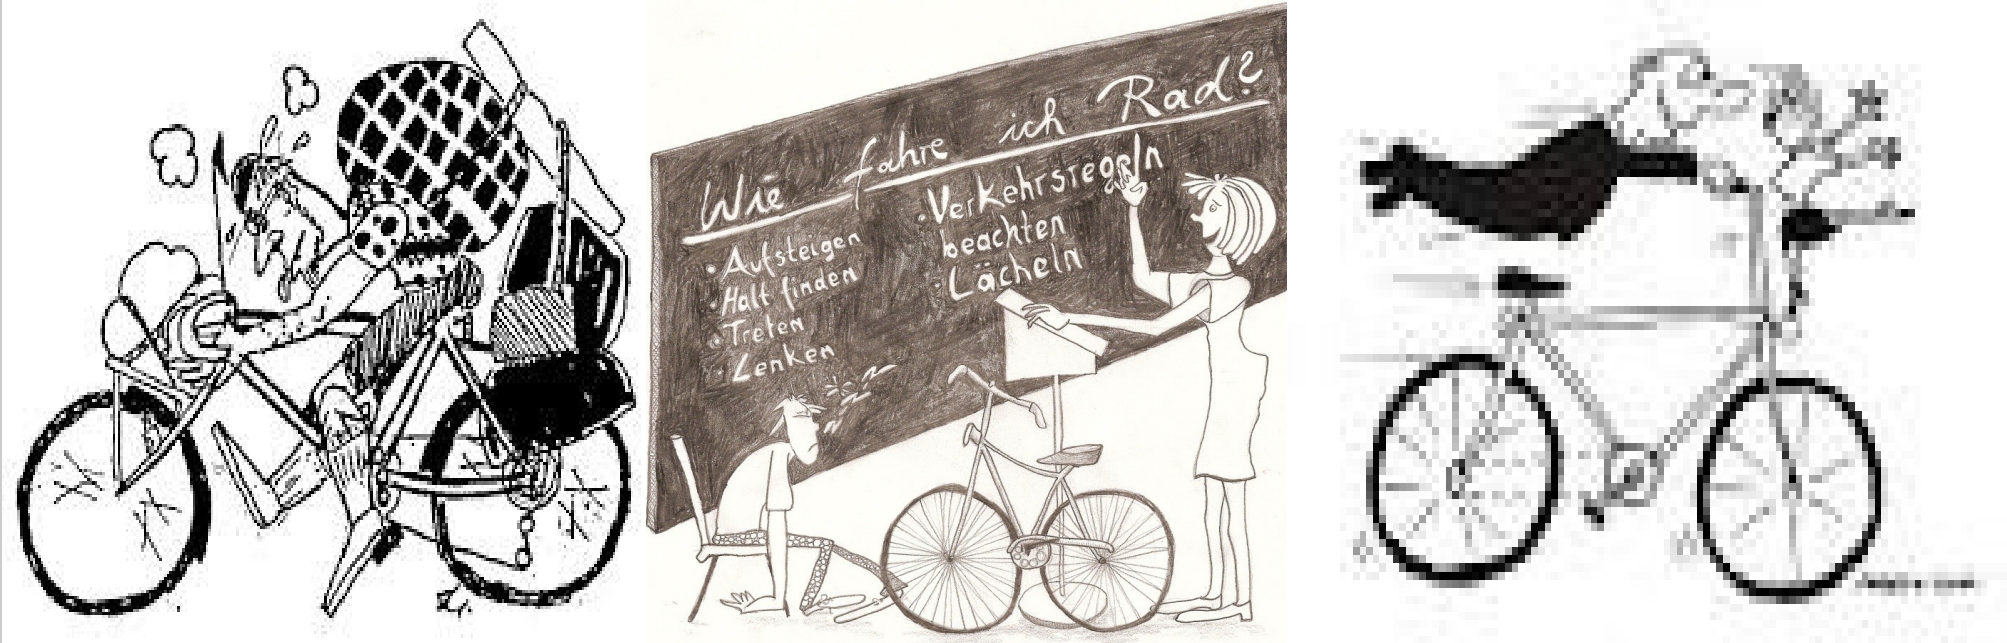 Wie fahre ich Rad?
• Aufsteigen
• Halt finden
• Treten
• Lenken
• Verkehrsregeln
beachten
• Lächeln